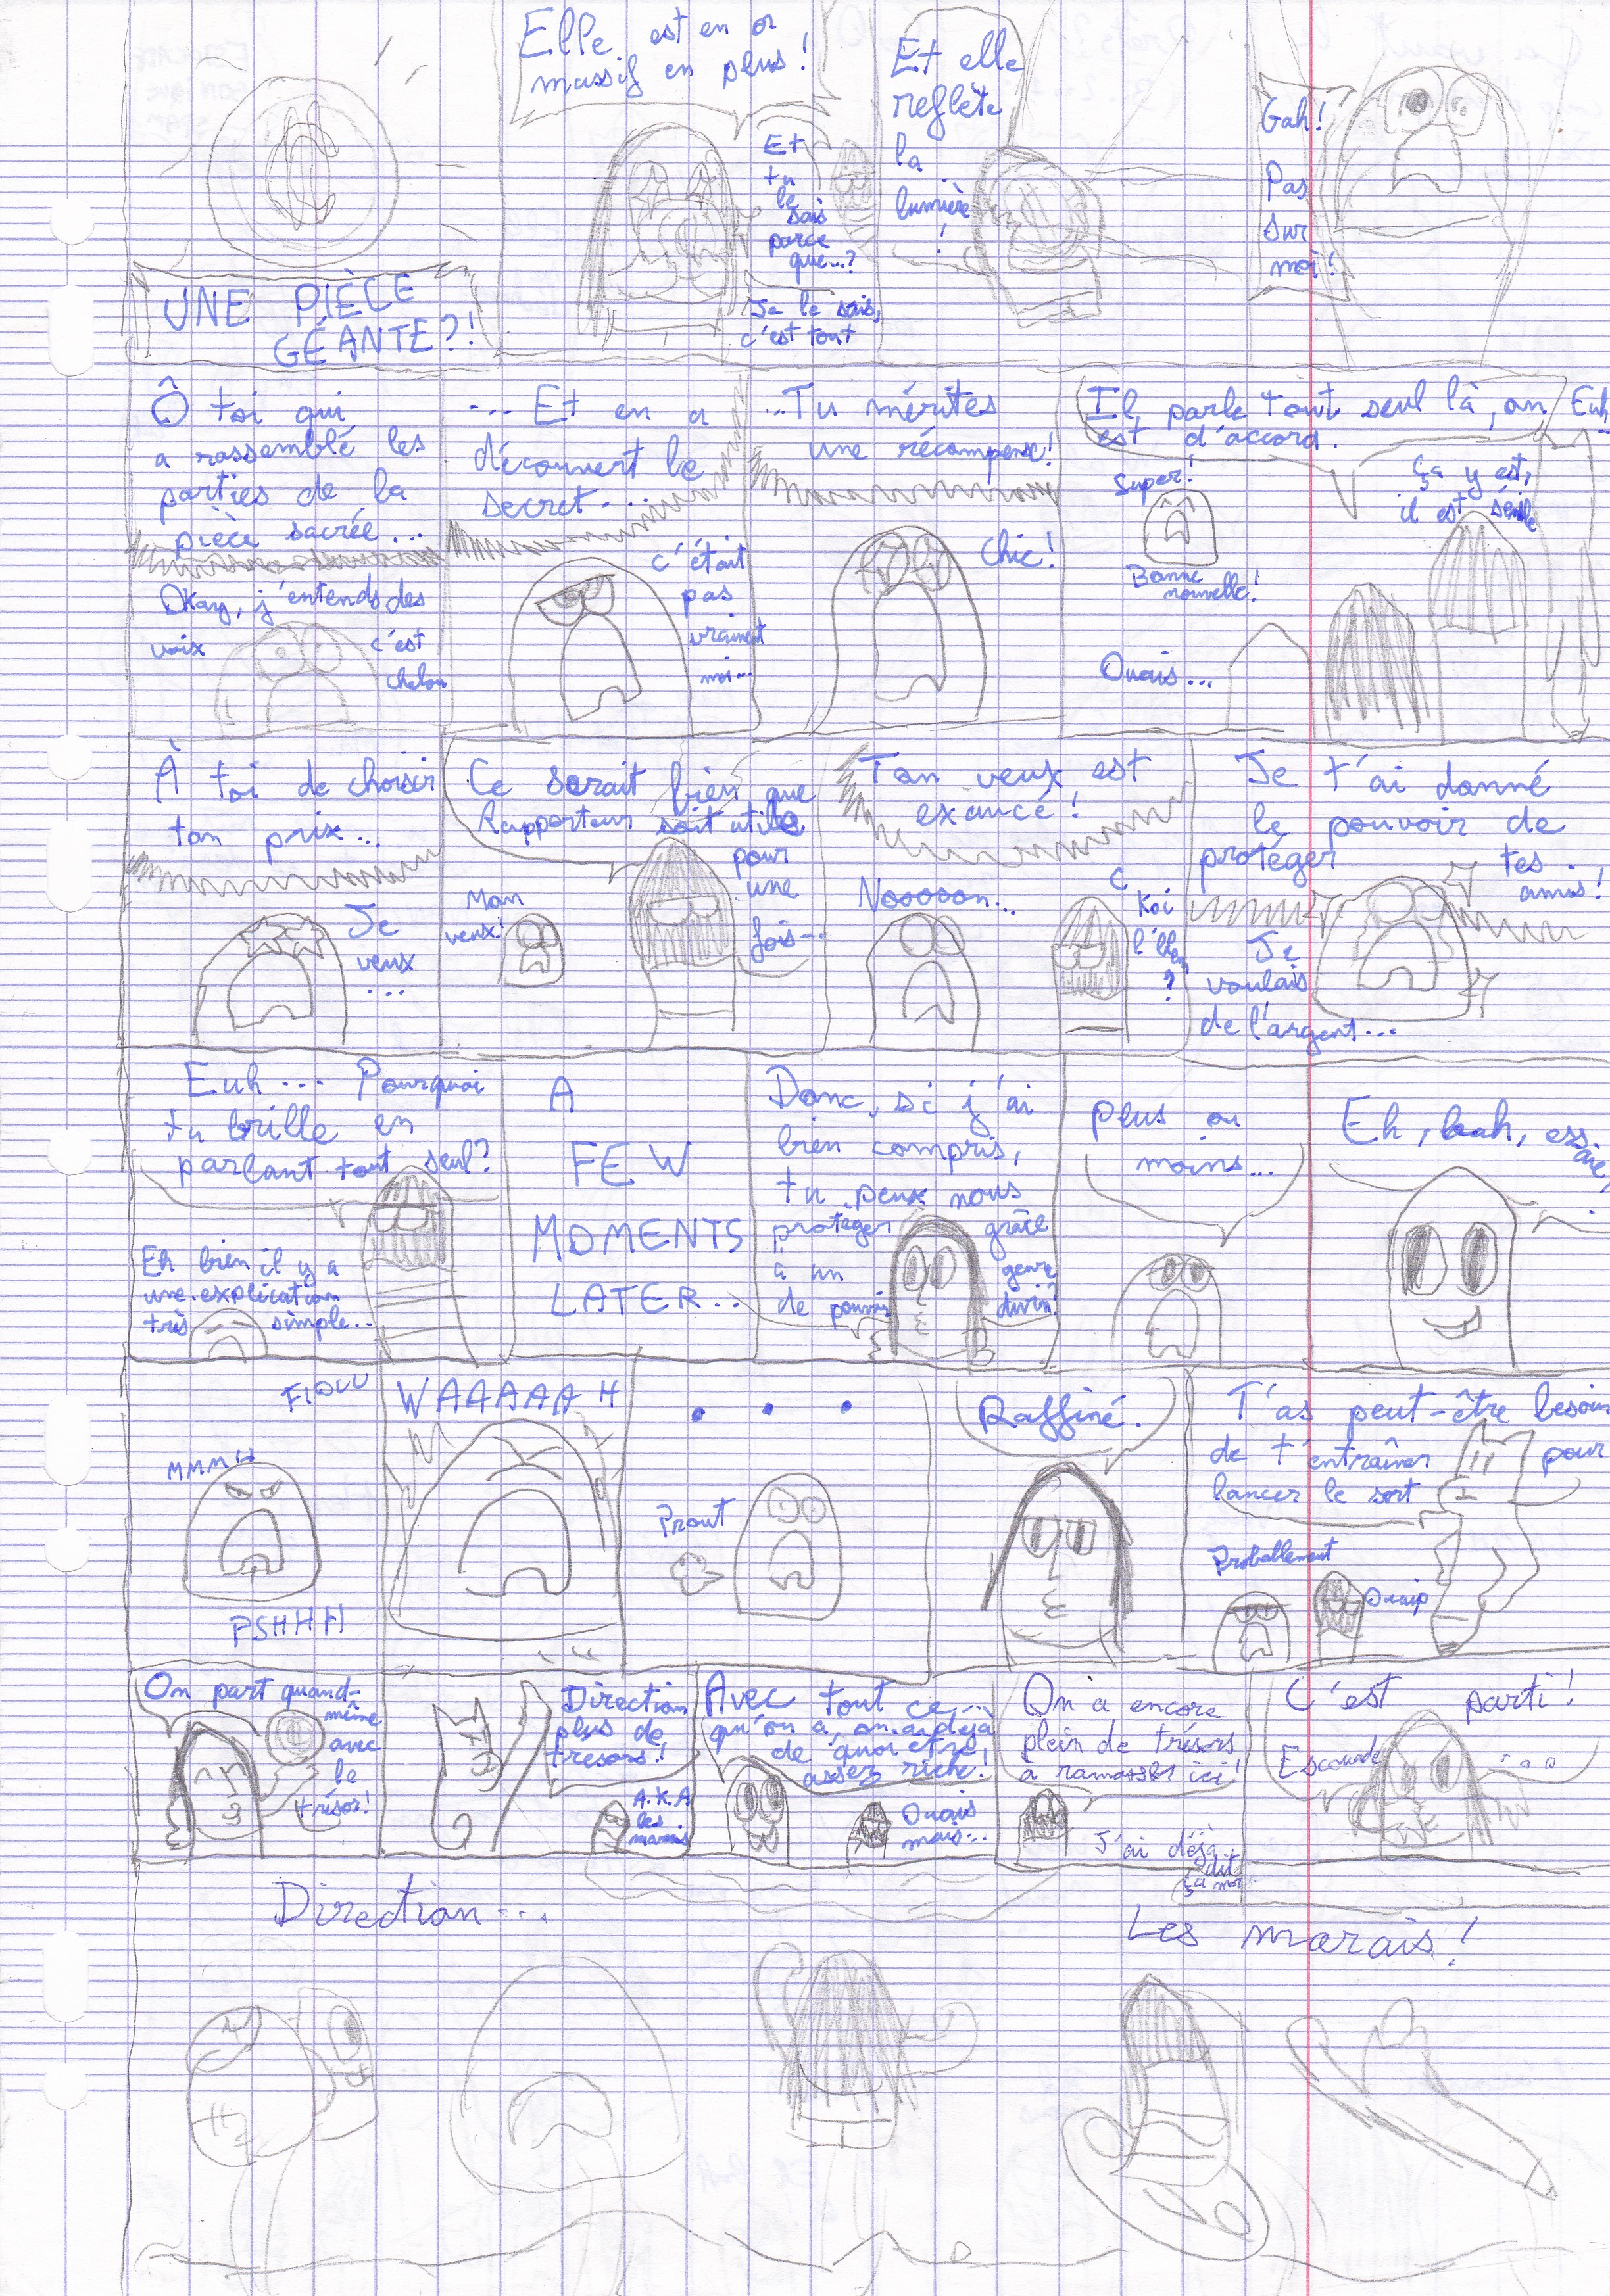 UNE PIÈCE
GÉANTE?!
Elle est en or
massif en plus!
Et
tu
le
sais
parce
que...?
Je le sais,
c'est tout
Et elle
reflète
la
lumière
!
Gah!
Pas
sur
moi!
Ô toi qui
a rassemblé les
parties de la
pièce sacrée...
Okay, j'entends des
voix
c'est
chelou
... Et en a
découvert le
secret...
c'était
pas
vraiment
moi...
...Tu mérites
une récompense!
Chic!
Il parle tout seul là, on
est d'accord.
Euh
...
Super!
Bonne
nouvelle!
Ça y est,
il est sénile
Ouais...
À toi de choisir
ton prix...
Je
veux
...
Ce serait bien que
Rapporteur soit utile
pour
une
fois...
Mon
veux!
Ton veux est
exaucé!
Nooooon...
C
Koi
l'blem
?
Je t'ai donné
le pouvoir de
protéger tes
amis!
Je
voulais
de l'argent...
Euh... Pourquoi
tu brille en
parlant tout seul?
Eh bien il y a
une explication
très simple...
A
FEW
MOMENTS
LATER...
Donc, si j'ai
bien compris,
tu peux nous
protéger grâce
à un genre
de pouvoir divin?
Plus ou
moins...
Eh, bah, essaie,
MMMH
FIOUU
PSHHH
WAAAAAH
...
Prout
Raffiné.
T'as peut-être besoin
de t'entraîner pour
lancer le sort
Probablement
Ouaip
On part quand-
même
avec
le
trésor!
Direction
plus de
trésors!
A.K.A
les
marais
Avec tout ce
qu'on a, on a déjà
de quoi être
assez riche!
Ouais
mais...
On a encore
plein de trésors
à ramasser ici!
J'ai déjà
dit
ça moi...
C'est parti!
Escouade
...
Direction...
Les marais!